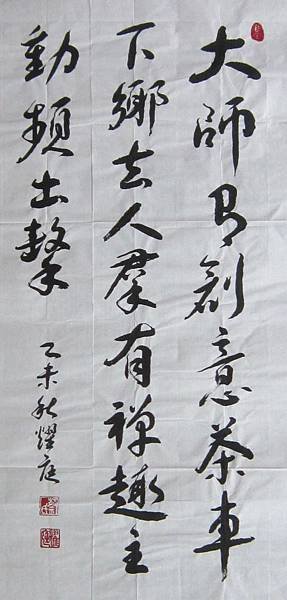 大師有創意茶車
下鄉去人羣有禅趣主
動頻出擊
乙未秋耀庭